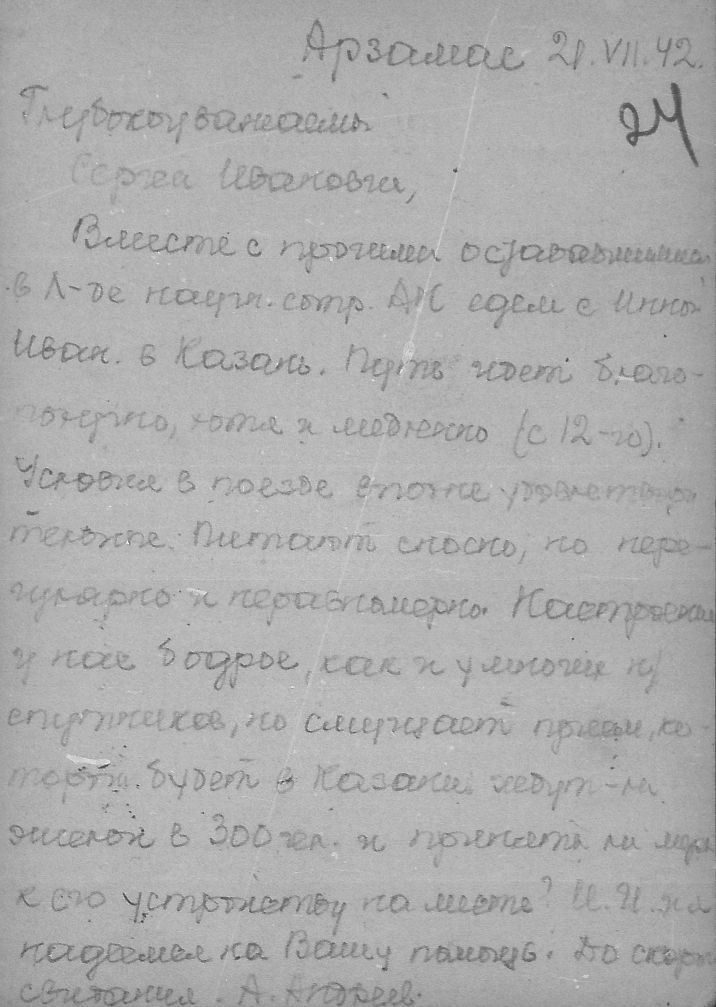 Арзамас 21.VII.42.
24
Глубокоуважаемый
Сергей Иванович,
Вместе с прочими остававшимися
в Л-де научн. сотр. АН едем с Инной
Иван. в Казань. Путь идет благо-
получно, хотя и медленно (с 12-го).
Условия в поезде вполне удовлетвори
тельные. Питают сносно, но нере-
гулярно и неравномерно. Настроение
у нас бодрое, как и у многих н/
спутников, но смущает прием, ко-
торый будет в Казани: ждут-ли
эшелон в 300 чел. и приняты ли меры
к его устройству на месте? И.И. и я
надеемся на Вашу помощь. До скорого
свидания. А. Андреев.